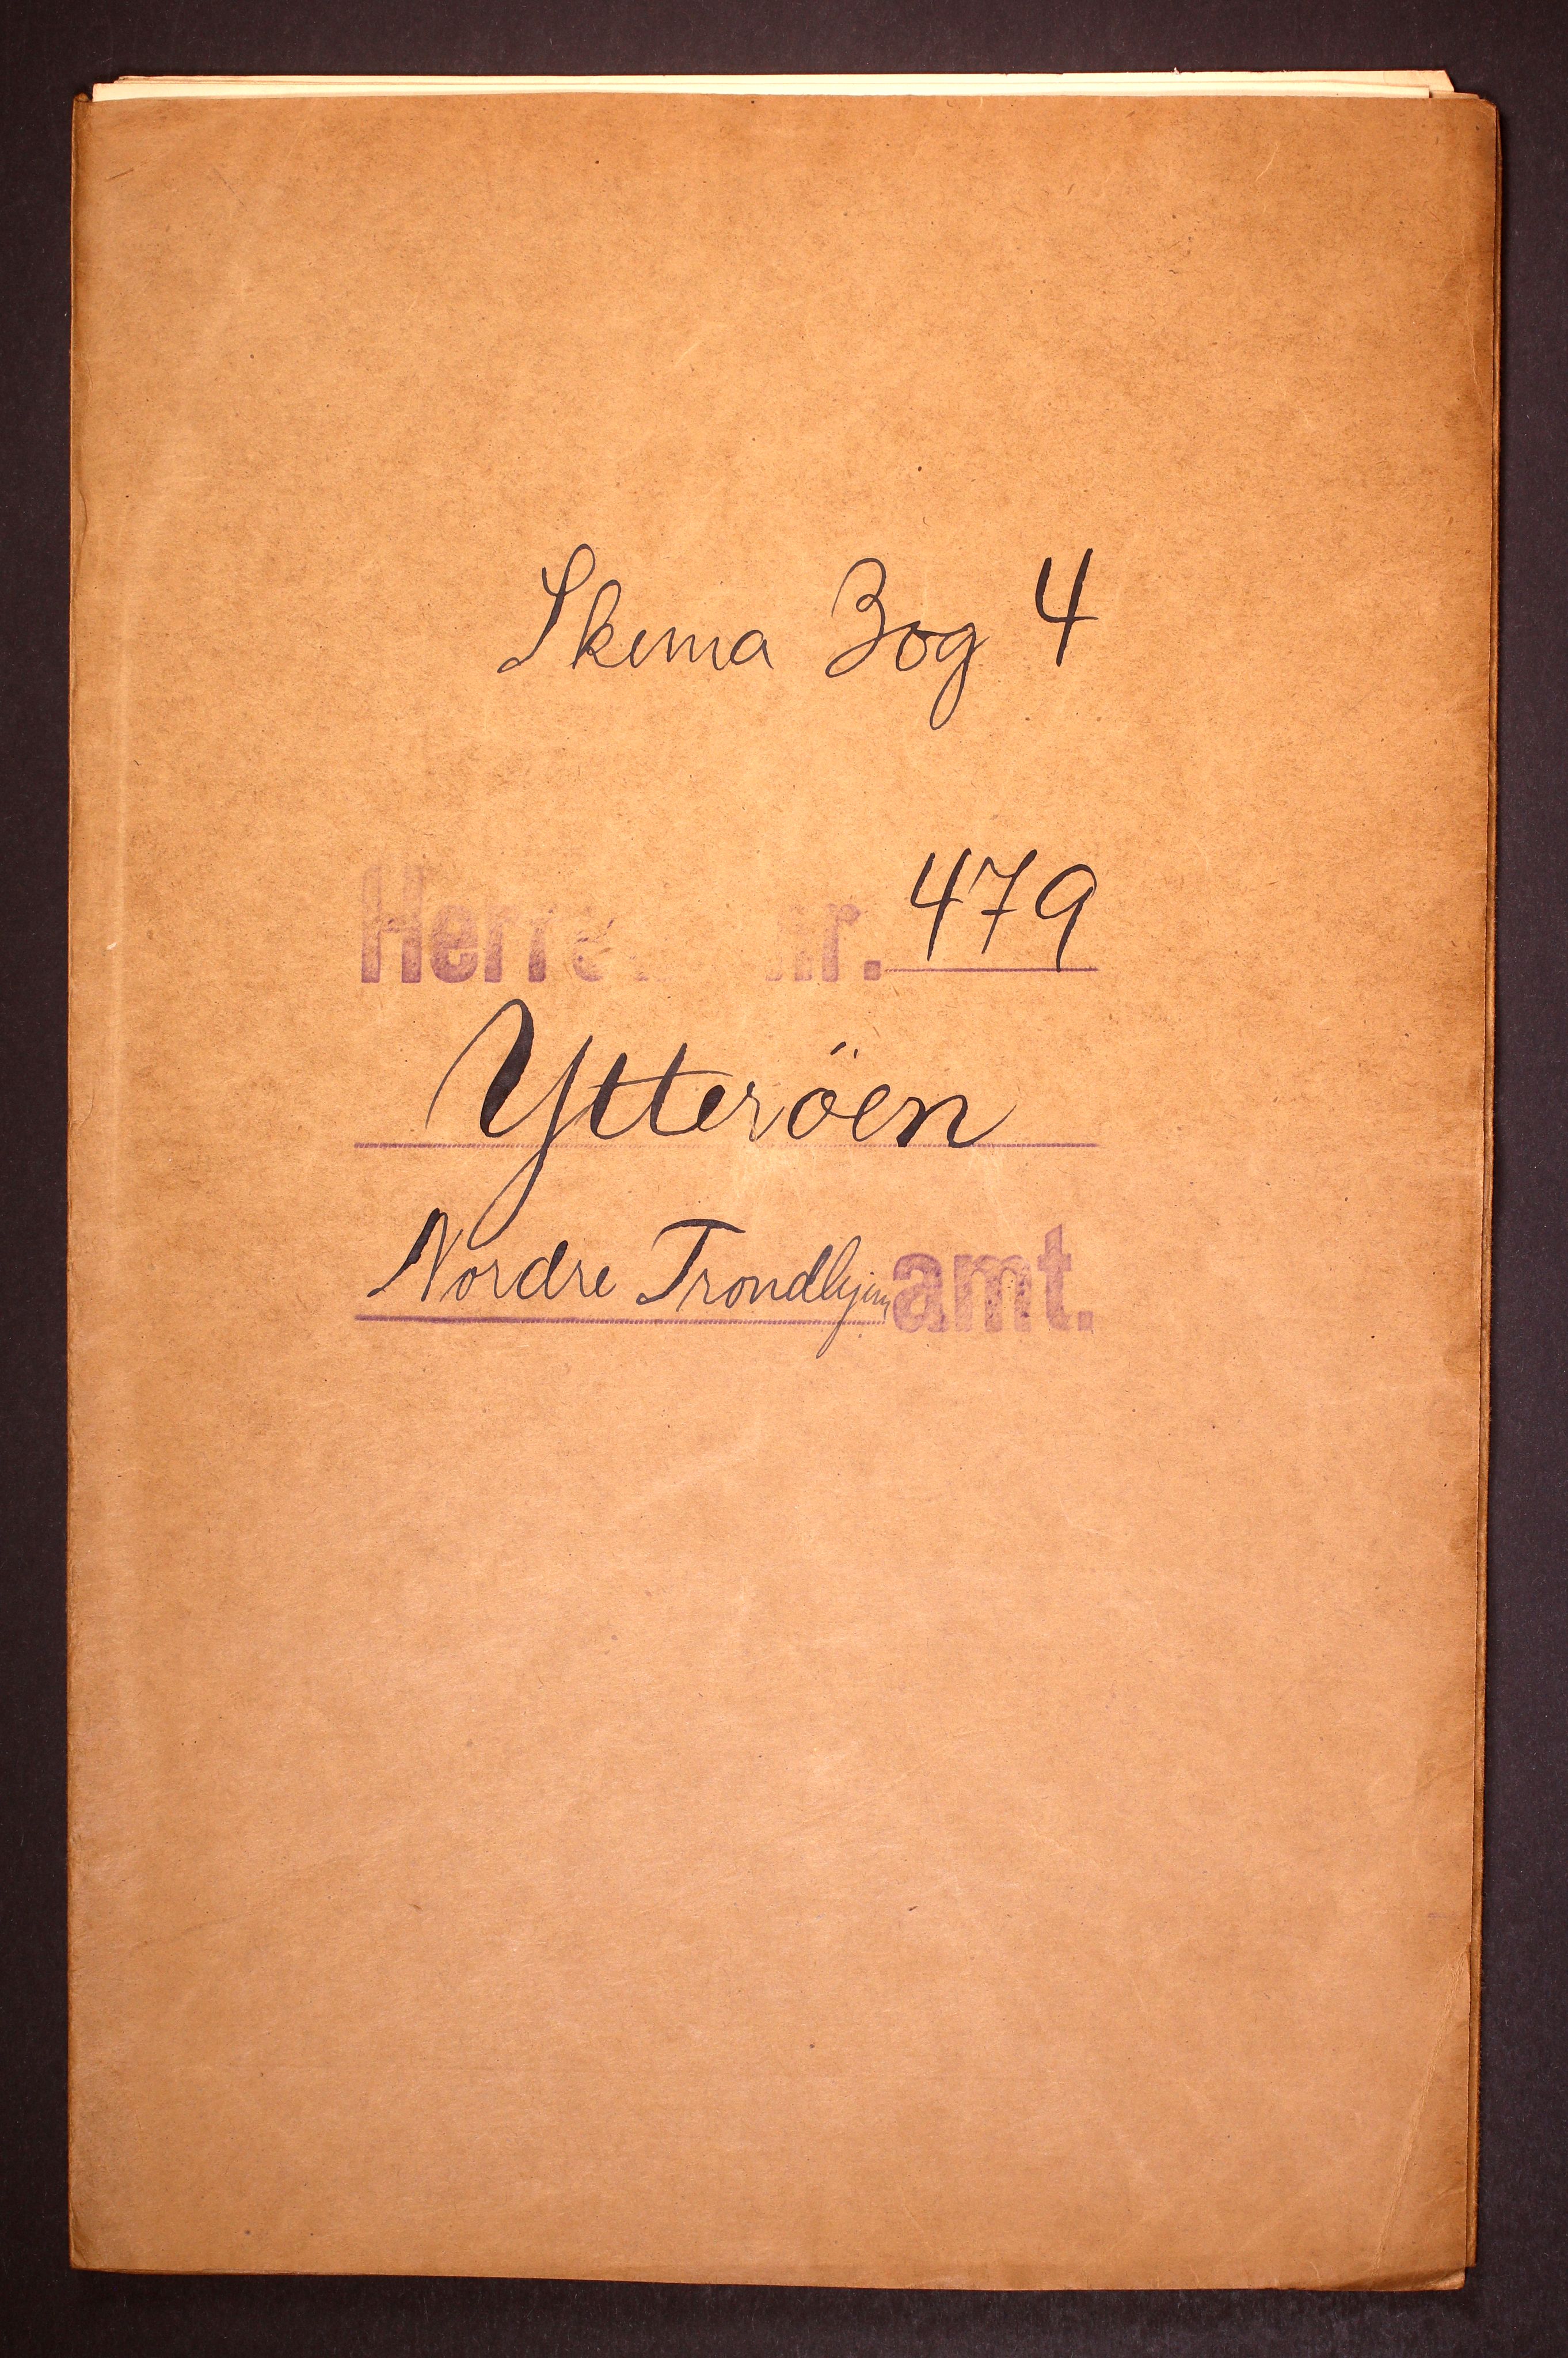 Skema Bog 4
Herreds nr. 479
Ytteröen
Nordre Trondhjems amt.